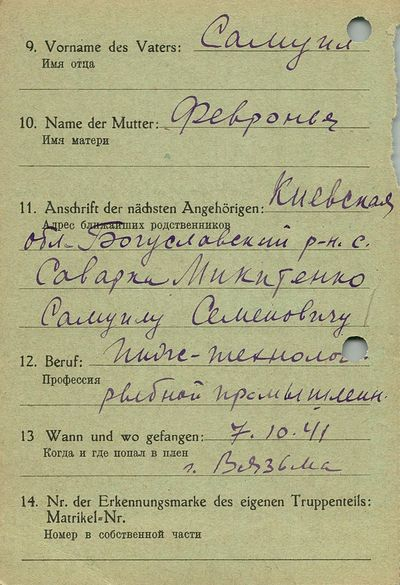 9. Vorname des Vaters: Самуил
Имя отца
10. Name der Mutter: Февронья
Имя матери
11. Anschrift der nächsten Angehörigen: Киевская
Адрес ближайших родственников
обл. Богуславский р-н. с.
Саварка Микитенко
Самуилу Семеновичу
12. Beruf: Инж-технолог
Профессия
рыбной промышленн.
13 Wann und wo gefangen: 7.10.41
Когда и где попал в плен
г. Вязьма
14. Nr. der Erkennungsmarke des eigenen Truppenteils:
Matrikel-Nr.
Номер в собственной части